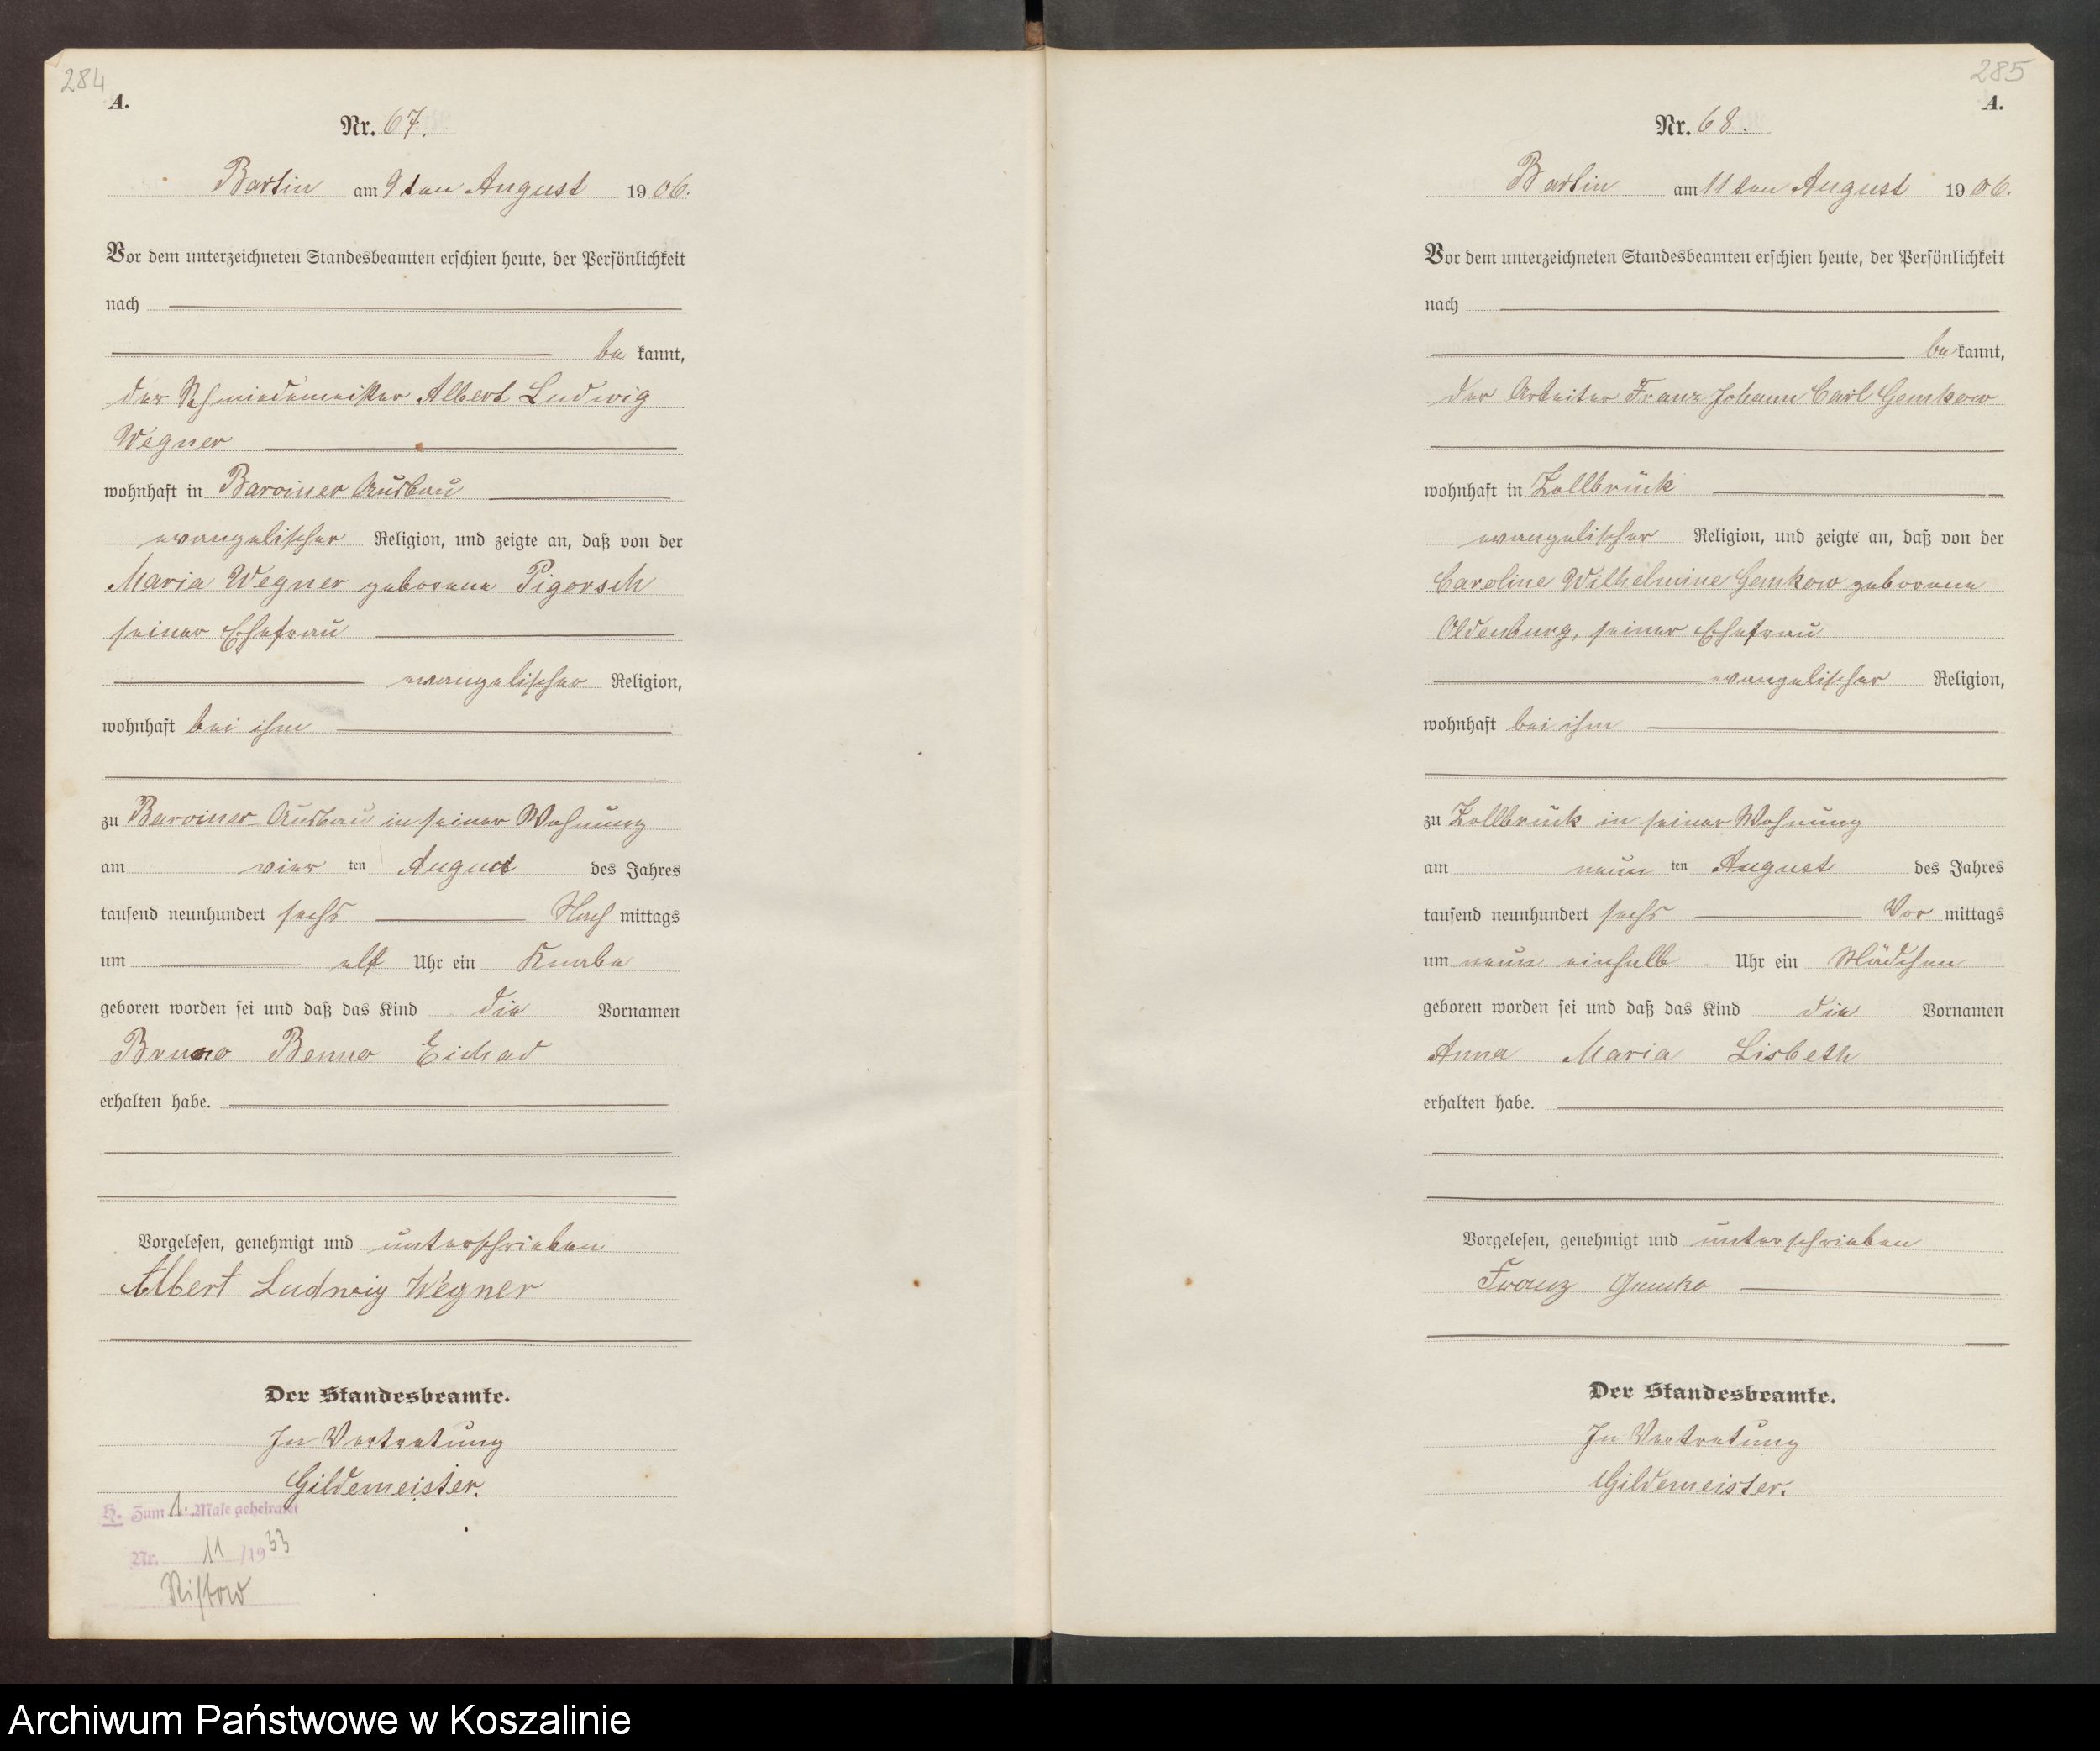 284
A.
Nr. 67.
Bartin am 9ten August 1906.
Vor dem unterzeichneten Standesbeamten erschien heute, der Persönlichkeit
nach
be kannt,
der Schmiedemeister Albert Ludwig
Wegner
wohnhaft in Barviner Ausbau
evangelischer Religion, und zeigte an, daß von der
Maria Wegner geborene Pigorsch
seiner Ehefrau
evangelischer Religion,
wohnhaft bei ihm
zu Barviner Ausbau in seiner Wohnung
am vier ten August des Jahres
tausend neunhundert sechs Nach mittags
um elf Uhr ein Knabe
geboren worden sei und daß das Kind die Vornamen
Bruno Benno
erhalten habe.
Vorgelesen, genehmigt und unterschrieben
Albert Ludwig Wegner
Der Standesbeamte.
In Vertretung
Gildemeister.
H. Zum 1. Male geheiratet
Nr. 11 /1933
285
A.
Nr. 68.
Bartin am 11ten August 1906.
Vor dem unterzeichneten Standesbeamten erschien heute, der Persönlichkeit
nach
be kannt,
der Arbeiter Franz Johann Carl Gemkow
wohnhaft in Zollbrück
evangelischer Religion, und zeigte an, daß von der
Caroline Wilhelmine Gemkow geborene
Oldenburg, seiner Ehefrau
evangelischer Religion,
wohnhaft bei ihm
zu Zollbrück in seiner Wohnung
am neun ten August des Jahres
tausend neunhundert sechs Vor mittags
um neun einhalb Uhr ein Mädchen
geboren worden sei und daß das Kind die Vornamen
Anna Maria Lisbeth
erhalten habe.
Vorgelesen, genehmigt und unterschrieben
Franz Gemko
Der Standesbeamte.
In Vertretung
Gildemeister.
Archiwum Państwowe w Koszalinie